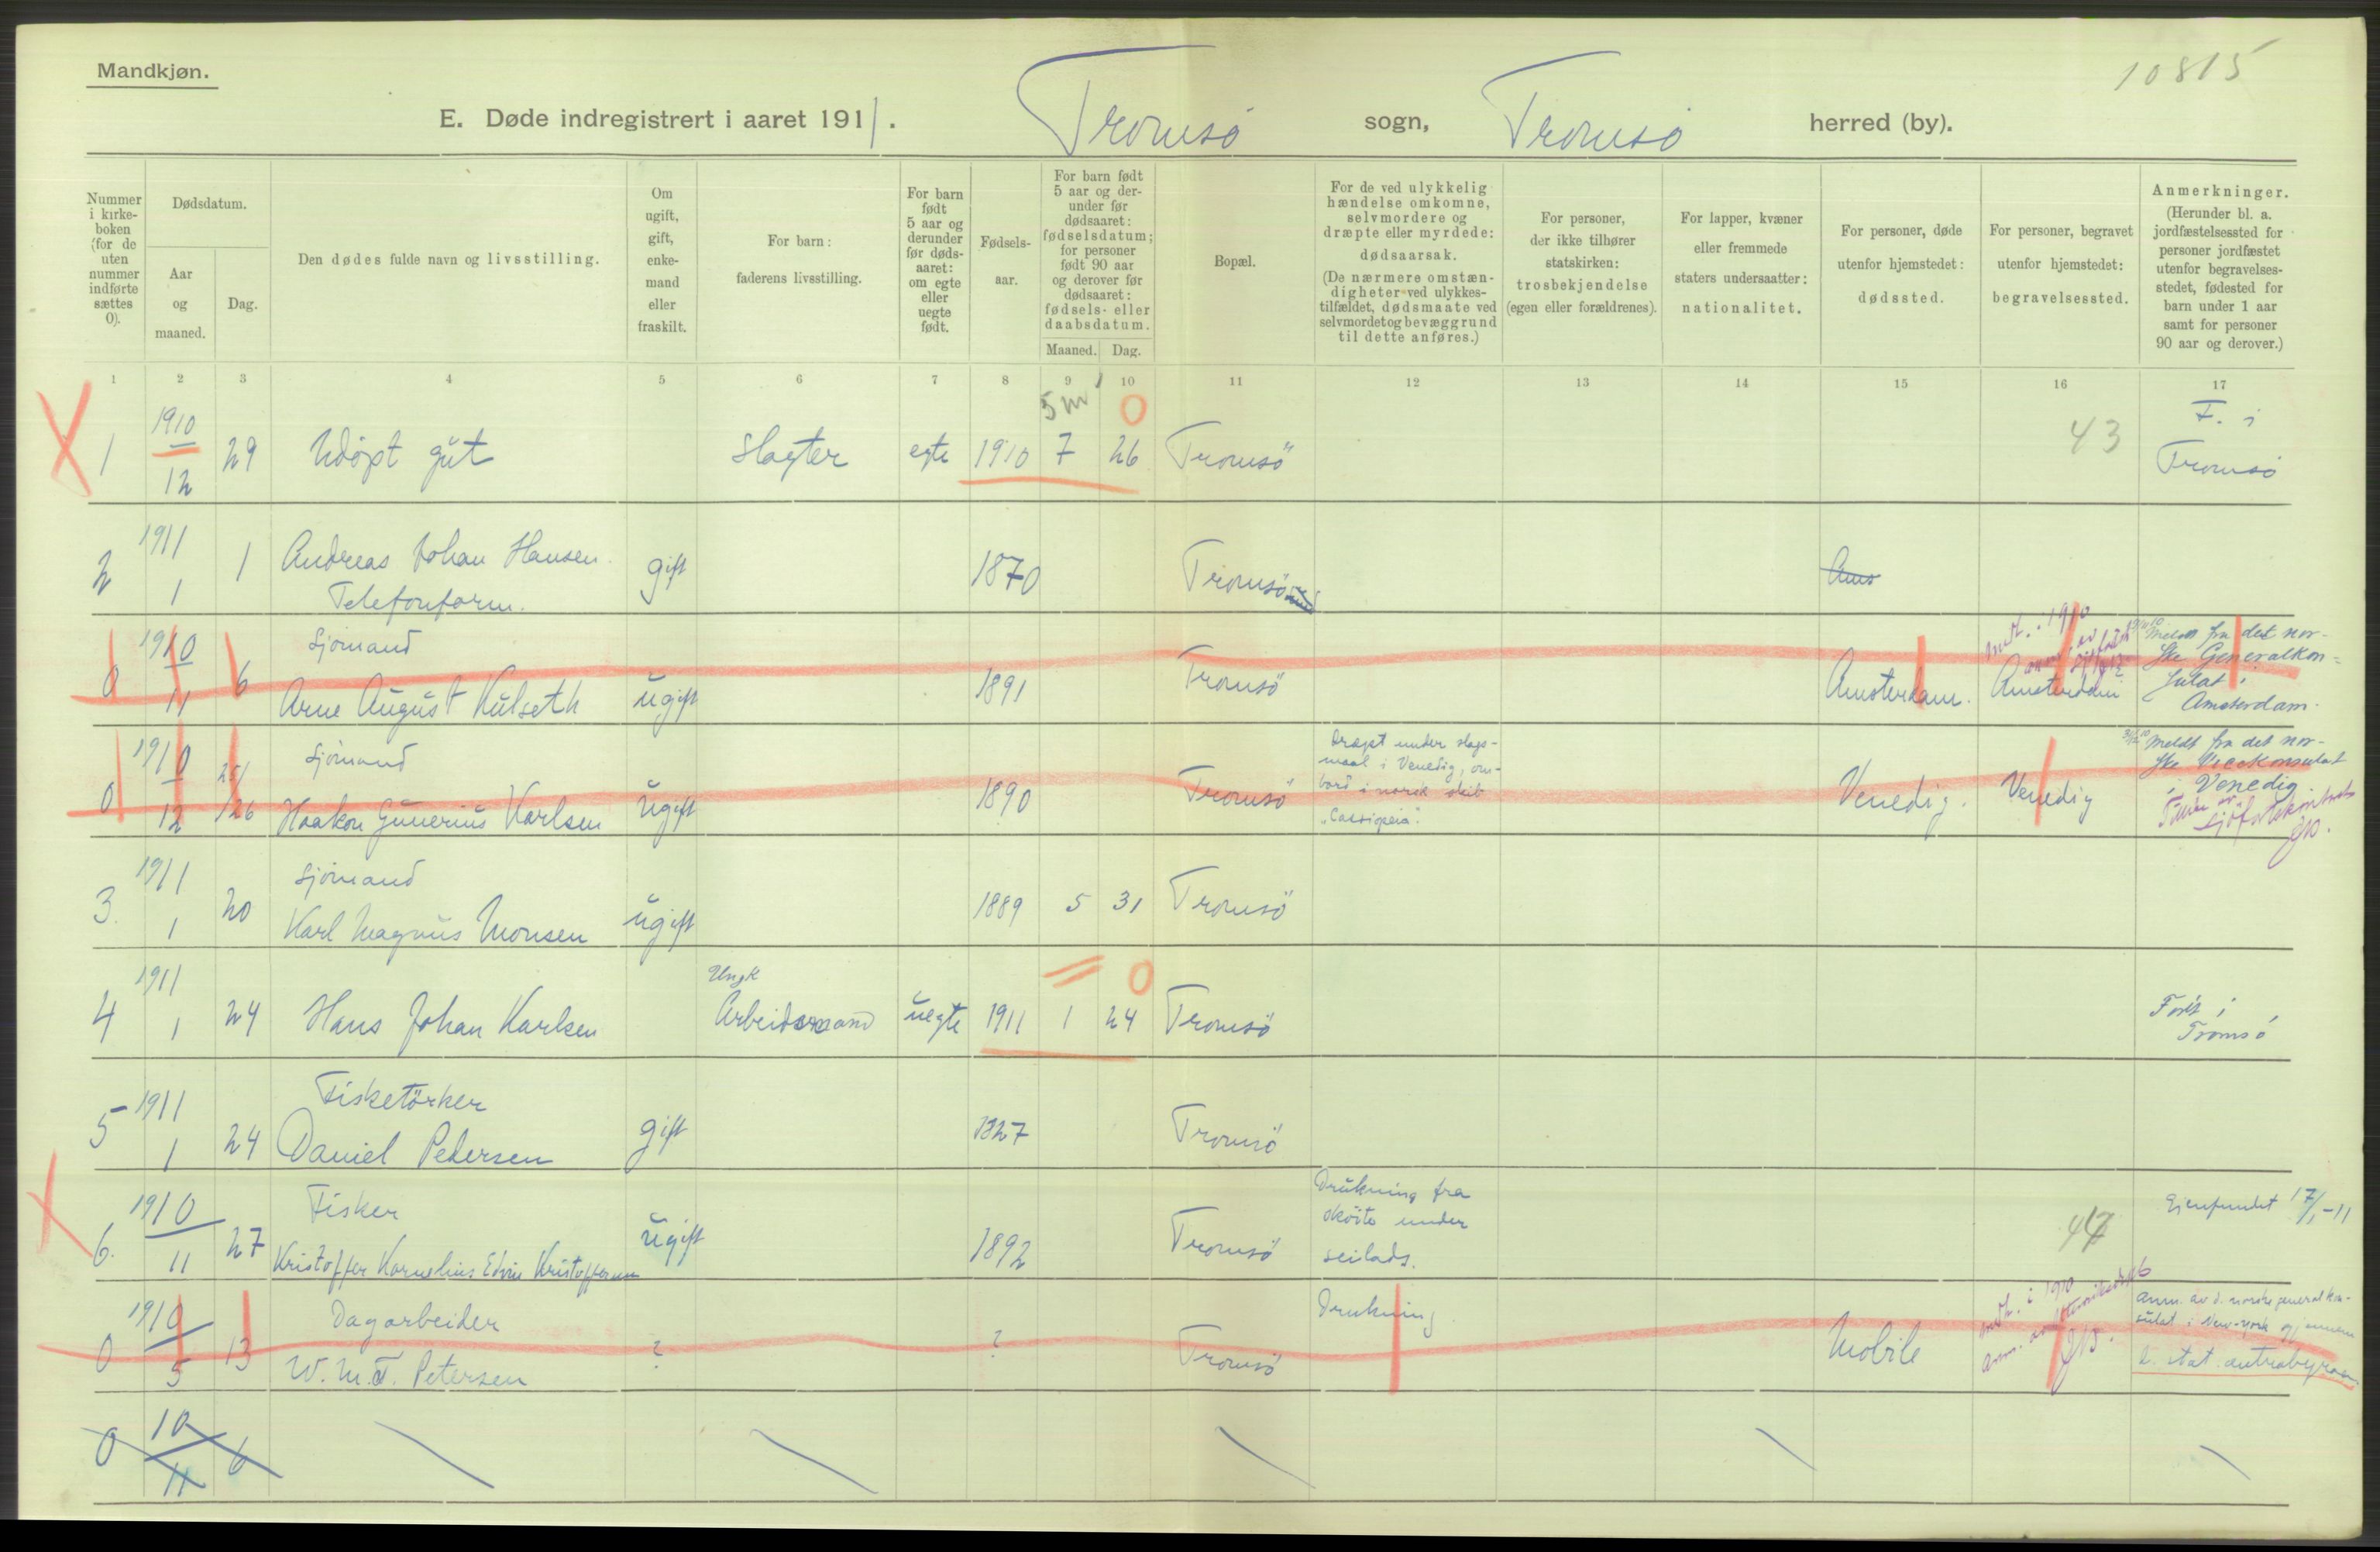 Mandkjøn.
10815
E. Døde indregistrert i aaret 1911. Tromsö sogn, Tromsö herred (by).
Nummer i kirke-boken (for de uten nummer indførte sættes 0).
Dødsdatum.
Aar og maaned.
Dag.
Den dødes fulde navn og livsstilling.
Om ugift, gift, enke-mand eller fraskilt.
For barn: faderens livsstilling.
For barn født 5 aar og derunder før døds-aaret: om egte eller uegte født.
Fødsels-aar.
For barn født 5 aar og der-under før dødsaaret: fødselsdatum; for personer født 90 aar og derover før dødsaaret: fødsels- eller daabsdatum.
Maaned. Dag.
Bopæl.
For de ved ulykkelig hændelse omkomne, selvmordere og dræpte eller myrdede: dødsaarsak.
(De nærmere omstæn-digheter ved ulykkes-tilfældet, dødsmaate ved selvmordet og bevæggrund til dette anføres.)
For personer, der ikke tilhører statskirken: trosbekjendelse (egen eller forældrenes).
For lapper, kvæner eller fremmede staters undersaatter: nationalitet.
For personer, døde utenfor hjemstedet: dødssted.
For personer, begravet utenfor hjemstedet: begravelsessted.
Anmerkninger.
(Herunder bl. a. jordfæstelsessted for personer jordfæstet utenfor begravelses-stedet, fødested for barn under 1 aar samt for personer 90 aar og derover.)
1 2 3 4 5 6 7 8 9 10 11 12 13 14 15 16 17
5 m 0
1 1910 12 29 Udöpt gut Slagter egte 1910 7 26 Tromsö 43 F. i Tromsö
2 1911 1 1 Andreas Johan Hansen.
Telefonform. gift 1870 Tromsö Ams
0 1910 11 6 Sjömand
Arne August Kulseth ugift 1891 Tromsö Amsterdam. Amsterdam
medt. i 1910
Meldt fra det nor-
ske Generalkon=
sulat i
Amsterdam.
0 1910 12 25/26 Sjömand
Haakon Gunerius Karlsen ugift 1890 Tromsö
Dræpt under slags-
maal i Venedig, om-
bord i norsk skib
"Cassiopeia".
Venedig. Venedig
Meldt fra det nor-
ske Vicekonsulat
i Venedig.
3. 1911 1 20 Sjömand
Karl Magnus Monsen ugift 1889 5 31 Tromsö
4 1911 1 24 Hans Johan Karlsen Ungk Arbeidsmand uegte 1911 1 24 Tromsö Födt i Tromsö
0
5 1911 1 24 Fisketörker
Daniel Pedersen gift 1827 Tromsö
6. 1910 11 27 Fisker
Kristoffer Kornelius Edvin Kristoffersen ugift 1892 Tromsö
Drukning fra
sköite under
seilads.
Gjenfundet 17/1-11
0 1910 5 13 Dagarbeider
W. M. F. Petersen ? ? Tromsö Drukning Mobile
medt. i 1910
anm. av d. norske generalkon-
sulat i New-york gjennem
d. stat. centralbyraa.
0 10 11 6